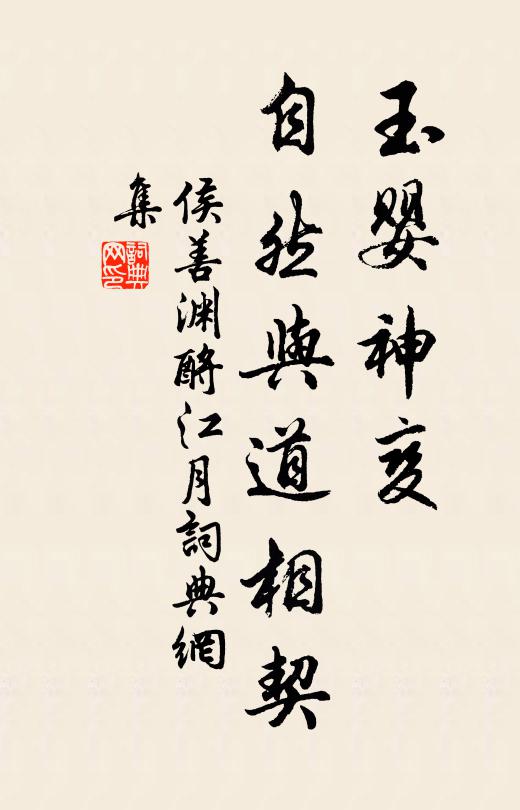 玉嬰神变
自然與道相契
侯善渊酹江月詞典網
集
詞典
网印